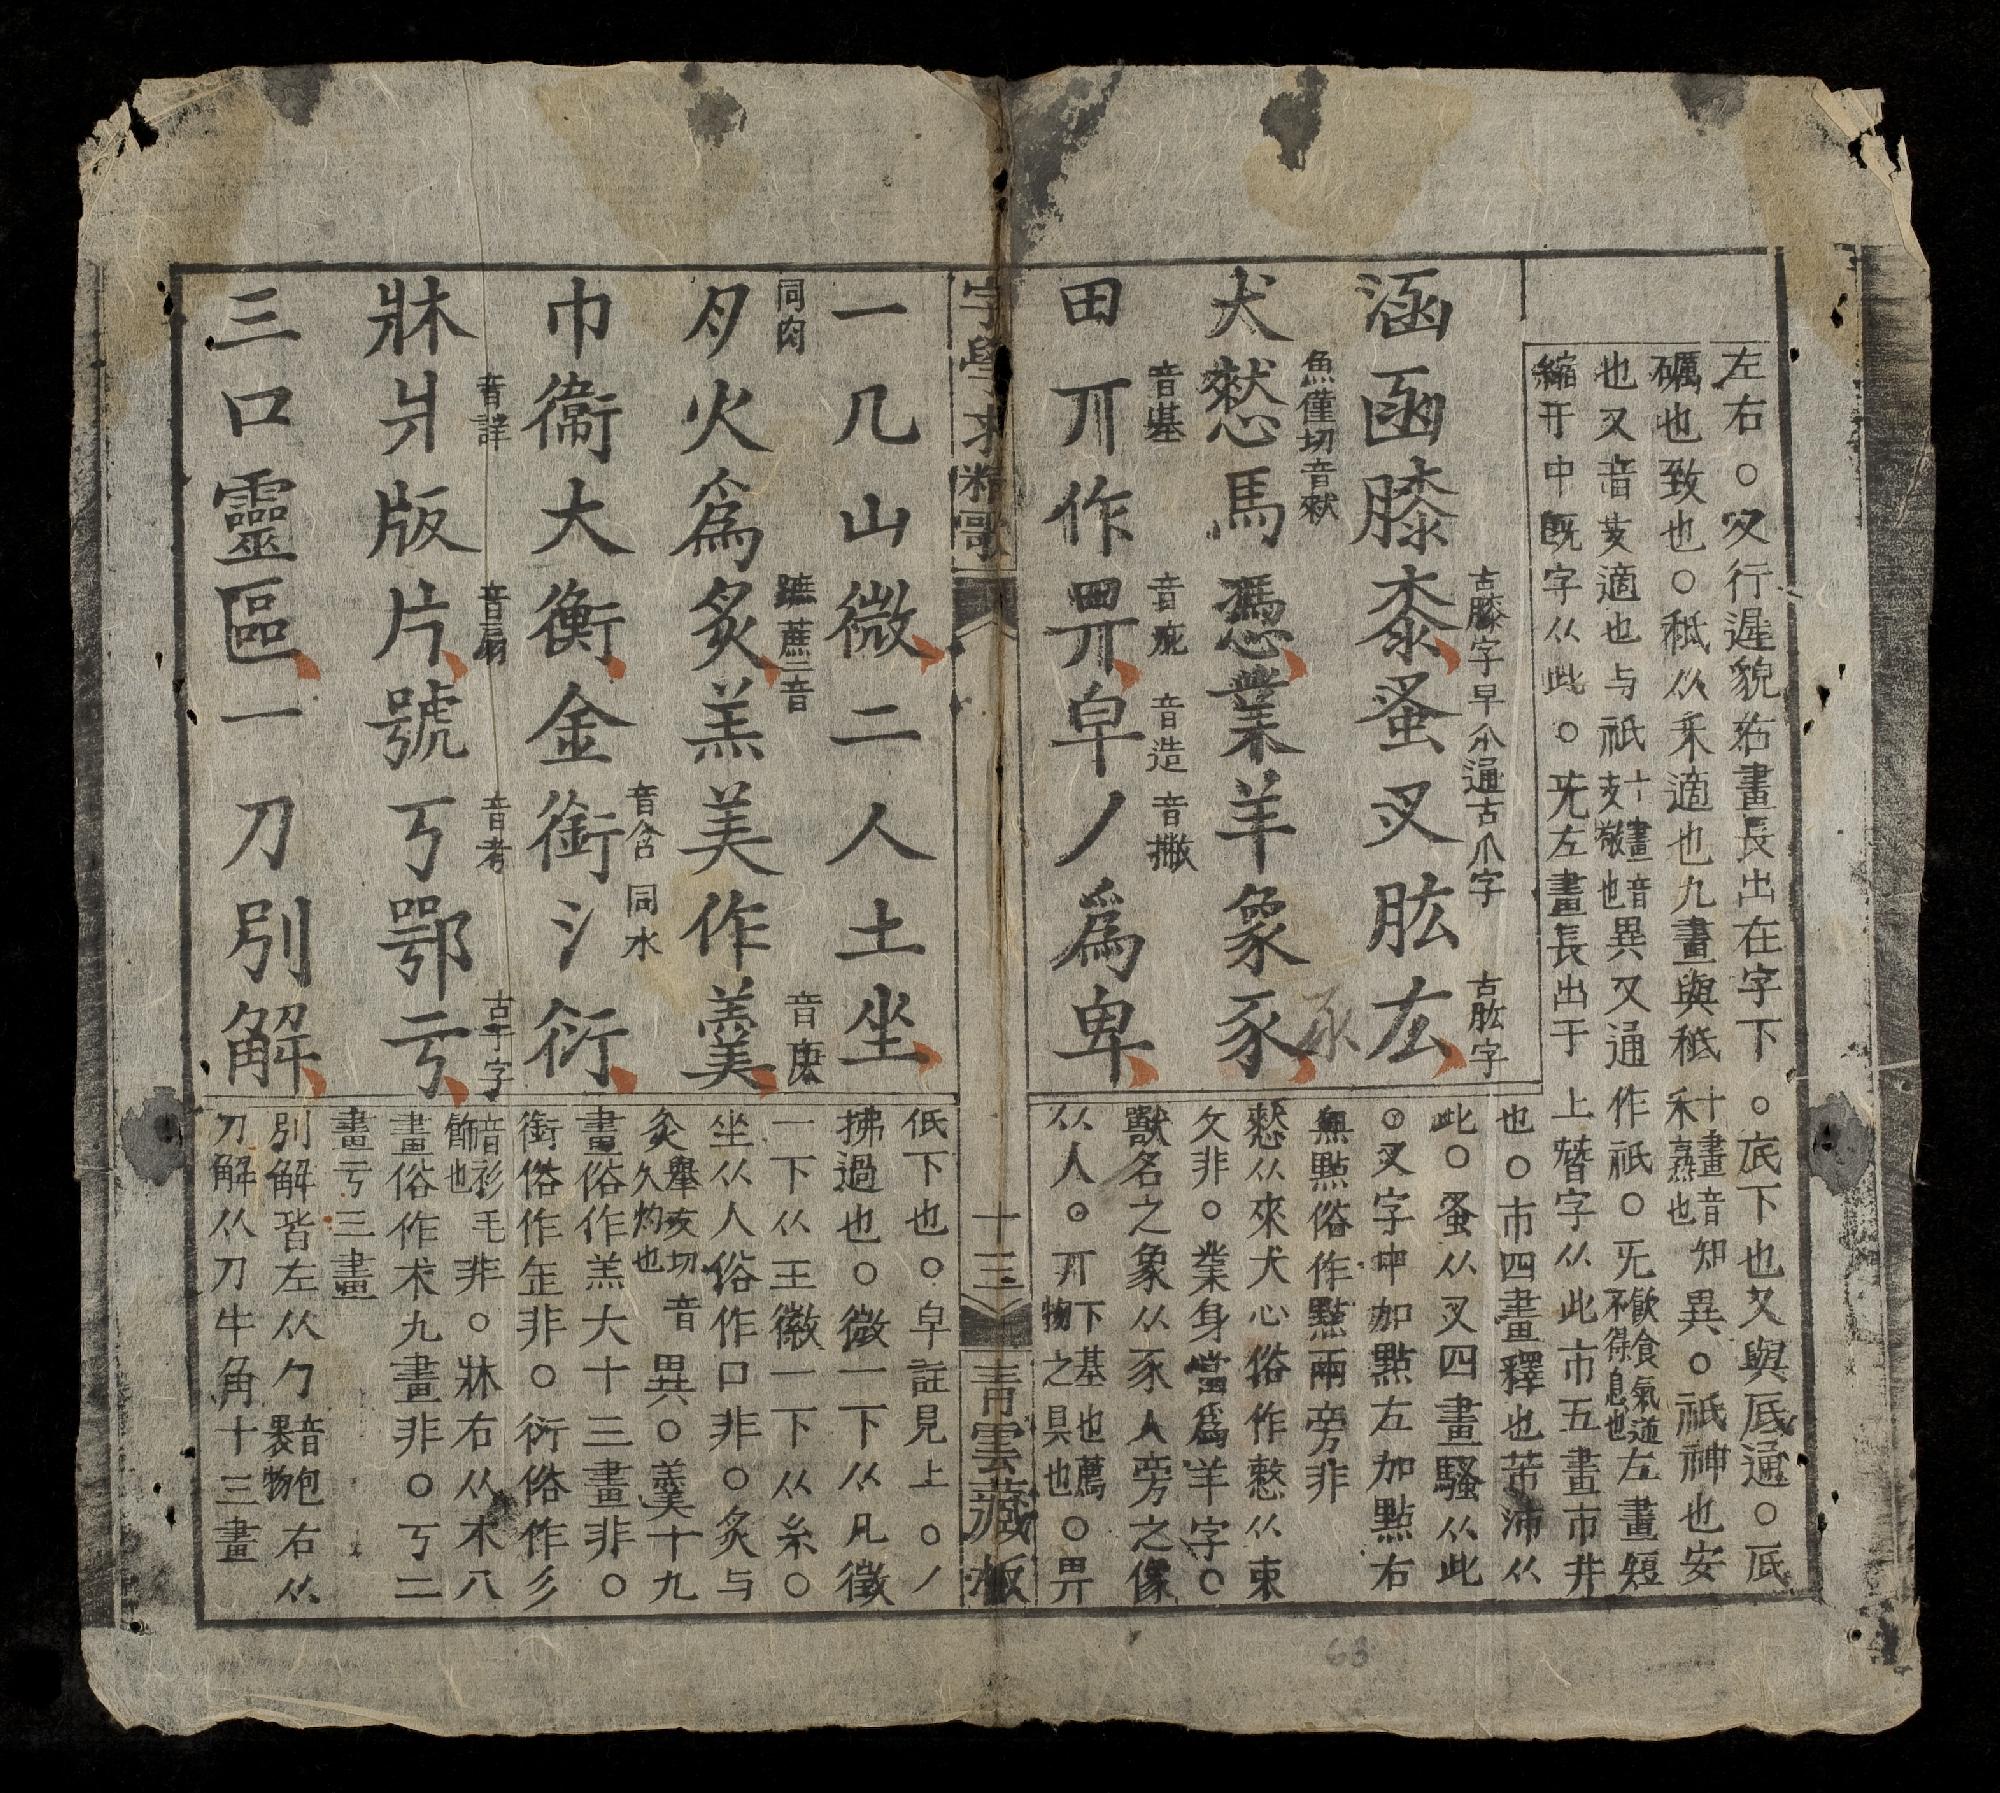 左右○夊行遲貌右畫長出在字下○底下也又與厎通○厎
礪也致也○秪从禾適也九畫與秪
禾熟也
十畫音知異○祇神也安
也又音支適也与祇
十畫音
支敬也
異又通作祇○旡
飲食氣逆
不得息也
左畫短
縮于中既字从此○旡左畫長出于上朁字从此市五畫市井
也○市四畫釋也芾沛从
此○蚤从叉四畫騷从此
○叉字中加點左加點右
無點俗作點兩旁非
憖从來犬心俗作憗从束
攵非○業身當爲羊字○
獸名之象从豕人旁之像
从人○丌
下基也薦
物之具也
○畀
涵函膝桼蚤叉肱厷
古膝字早仝通古爪字
古肱字
犬憖馬憑業羊象豕
魚僅切音猌
豕
田丌作畀皁丿爲卑
音基
音庇
音造
音撇
字學求精歌
十三
青雲藏板
一几山微二人土坐
⺼火爲炙羔美作羹
同肉
蹠蔗二音
音庚
巾衞大衡金銜氵衍
音含
同水
牀爿版片號丂鄂亏
音詳
音扇
音考
古于字
三口靈區一刀別解
低下也○皁註見上○丿
拂過也○微一下从几徵
一下从王徽一下从糸○
坐从人俗作口非○炙与
灸
舉友切音
久灼也
異○羹十九
畫俗作羔大十三畫非○
銜俗作缷非○衍俗作彡
音衫毛
飾也
非○牀右从木八
畫俗作朮九畫非○丂二
畫亏三畫
別解皆左从勹
音包
裹物
右从
刀解从刀牛角十三畫
63